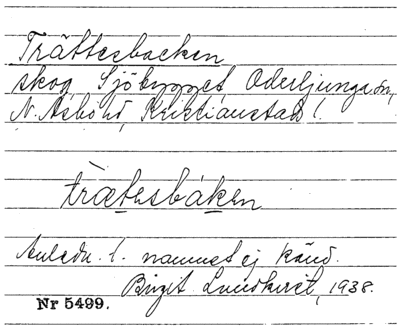 Trättesbacken
skog, Sjöbygget, Oderljunga sn,
N. Åsbo hd, Kristianstads l.
trætesbáken
Anledn. t. namnet ej känd.
Birgit Lundkvist, 1938.
Nr 5499.